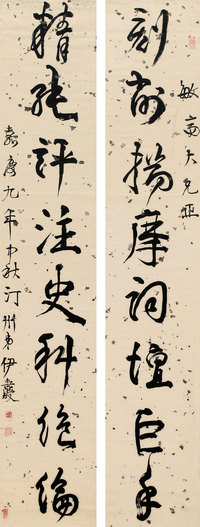 敏齋大兄正
刻摩詞壇巨手
精評注史科絕倫
嘉慶九年中秋汀州弟伊秉綬